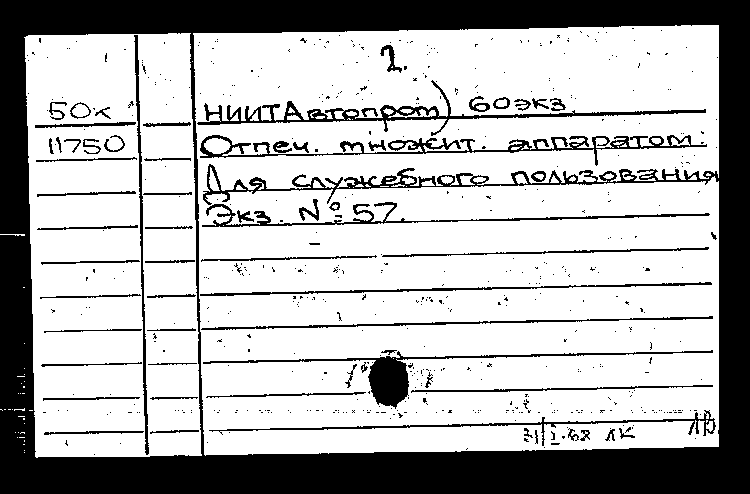 2.
50к НИИТАвтопром) 60экз.
11750 Отпеч. множит. аппаратом.
Для служебного пользования
Экз. № 57.
31/I.68 ЛК ЛВ